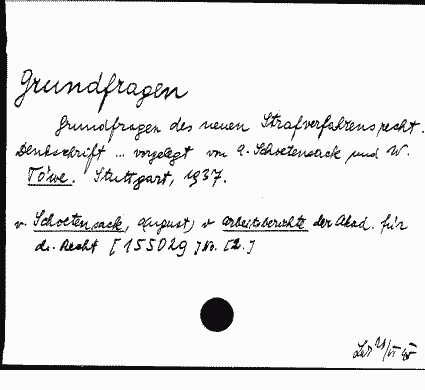 Grundfragen
Grundfragen des neuen Strafverfahrensrecht.
Denkschrift ... vorgelegt von A. Schoetensack und W.
Töwe. Stuttgart, 1937.
v. Schoetensack, August, v Arbeitsberichte der Akad. für
dt. Recht [155029] No. [2.]